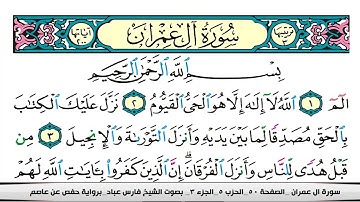 سُورَةُ آلِ عِمْرَانَ
بِسْمِ اللَّهِ الرَّحْمَٰنِ الرَّحِيمِ
الٓمٓ ١ اللَّهُ لَا إِلَٰهَ إِلَّا هُوَ الْحَيُّ الْقَيُّومُ ٢ نَزَّلَ عَلَيْكَ الْكِتَابَ
بِالْحَقِّ مُصَدِّقًا لِمَا بَيْنَ يَدَيْهِ وَأَنزَلَ التَّوْرَاةَ وَالْإِنجِيلَ ٣ مِن
قَبْلُ هُدًى لِّلنَّاسِ وَأَنزَلَ الْفُرْقَانَ إِنَّ الَّذِينَ كَفَرُوا بِآيَاتِ اللَّهِ لَهُمْ
سورة ال عمران _ الصفحة ٥٠_ الحزب ٥_ الجزء ٣_ بصوت الشيخ فارس عباد_ برواية حفص عن عاصم